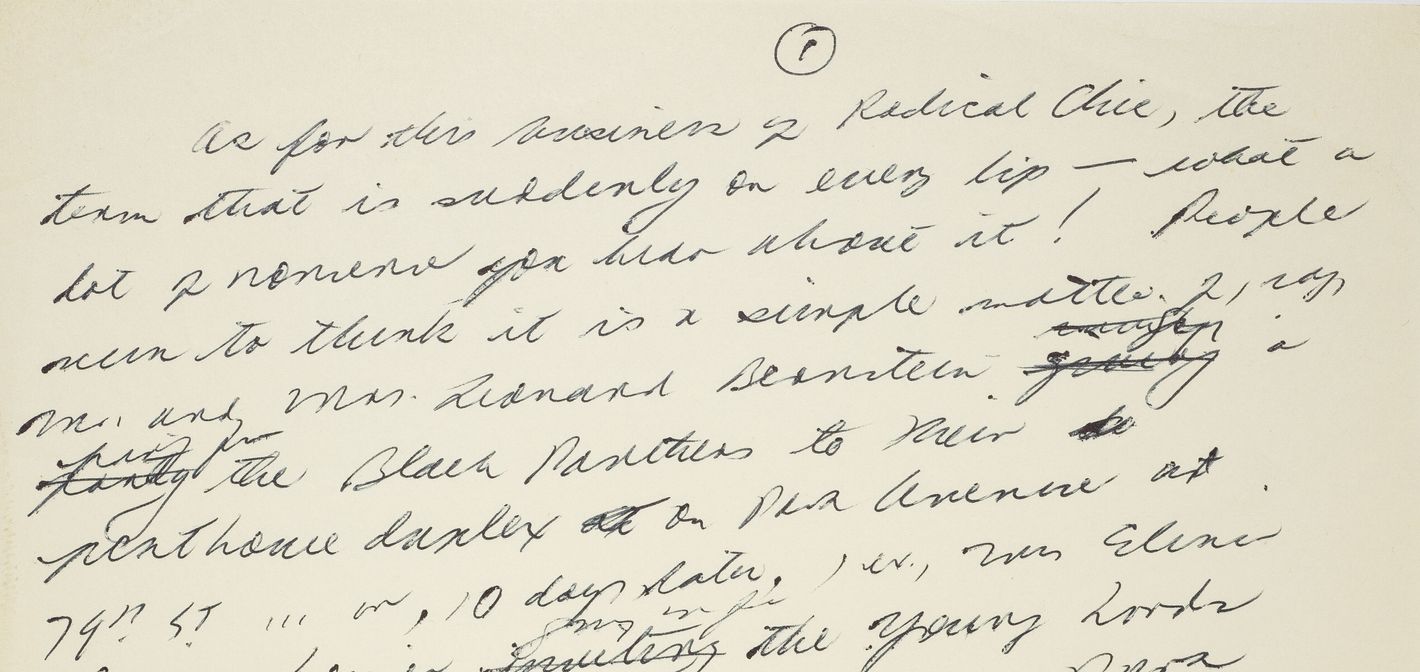 1
As for this business of Radical Chic, the
term that is suddenly on every lip — what a
lot of nonsense you hear about it! People
seem to think it is a simple matter of, say,
Mr. and Mrs. Leonard Bernstein giving a
party for
the Black Panthers to their
penthouse duplex on Park Avenue at
79th St ... or, 10 days later,
the Young Lords